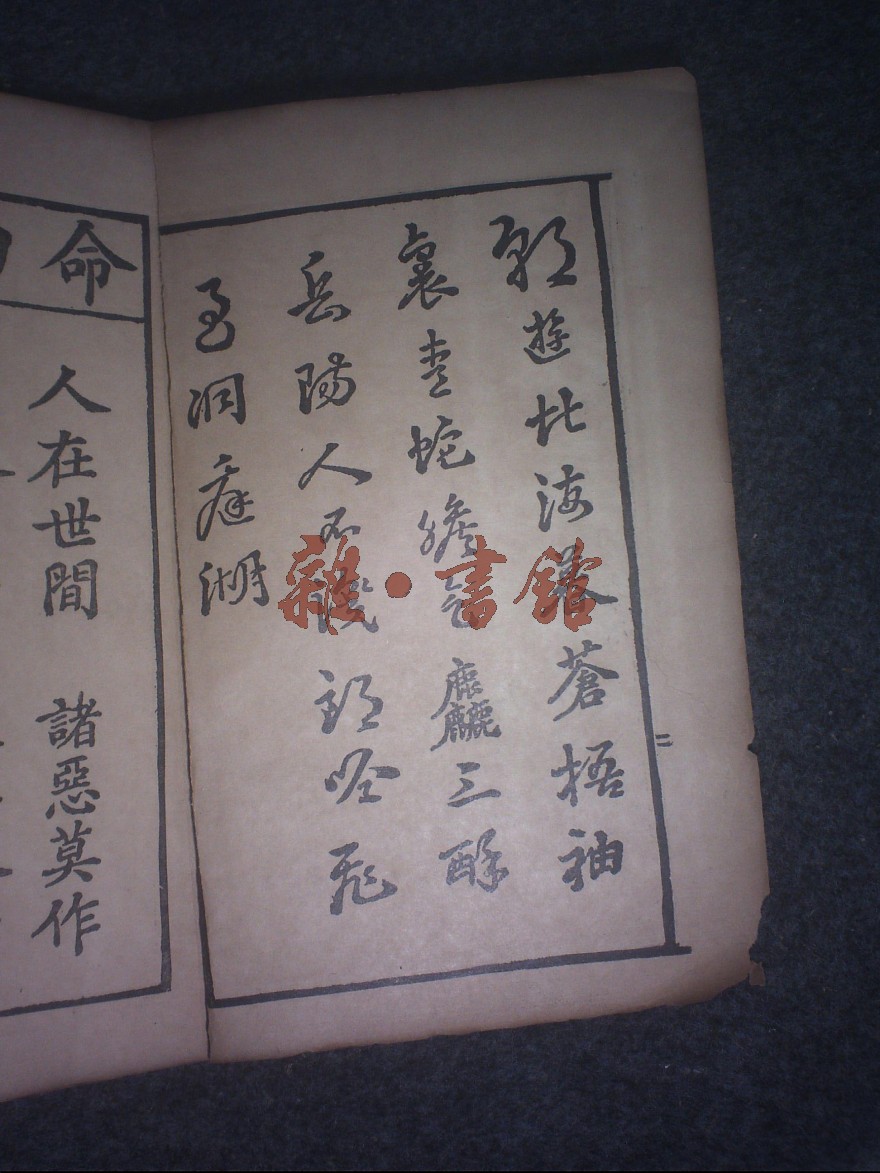 朝遊北海暮蒼梧袖
裏青蛇膽氣麤三醉
岳陽人不識朗吟飛
過洞庭湖
二
命
人在世間 諸惡莫作
雜·書館